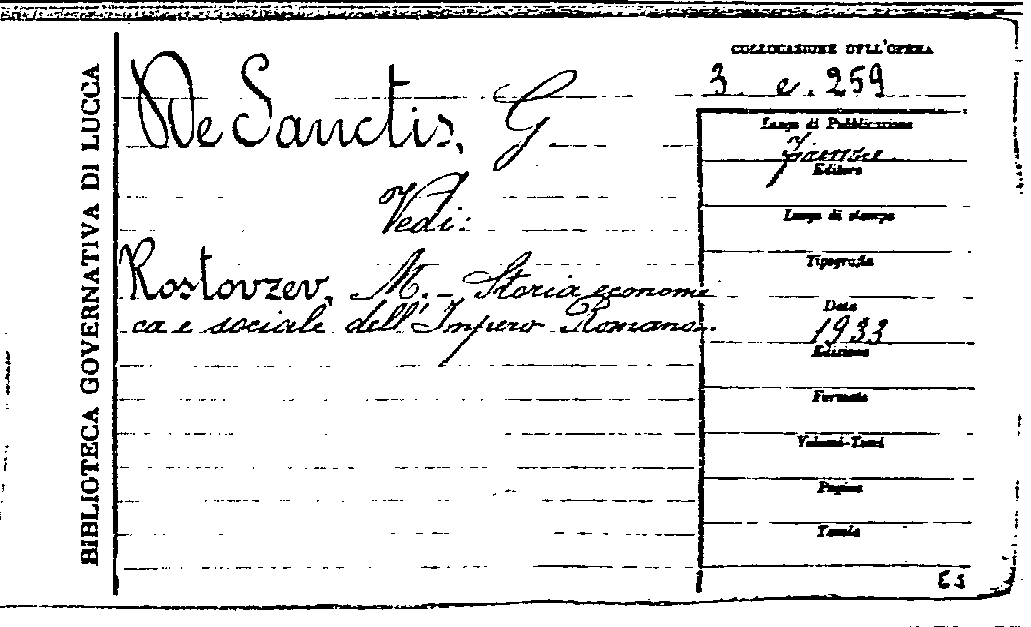 BIBLIOTECA GOVERNATIVA DI LUCCA
De Sanctis, G
Vedi:
Rostovzev, M. - Storia economi
ca e sociale dell'Impero Romano.
COLLOCAZIONE DELL'OPERA
3. e. 259
Luogo di Pubblicazione
Firenze
Editore
Luogo di stampa
Tipografia
Data
1933
Edizione
Formato
Volumi-Tomi
Pagine
Tavole